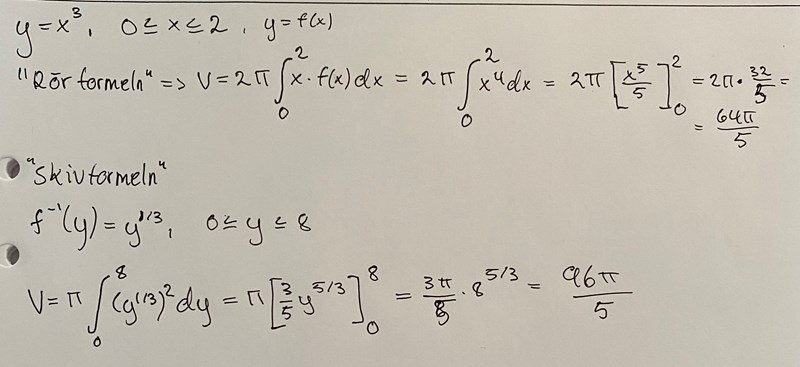 y = x³, 0 ≤ x ≤ 2, y = f(x)
"Rör formeln" => V = 2π ∫₀² x · f(x) dx = 2π ∫₀² x⁴ dx = 2π [x⁵/5]₀² = 2π · 32/5 =
= 64π/5
"Skivformeln"
f⁻¹(y) = y^(1/3), 0 ≤ y ≤ 8
V = π ∫₀⁸ (y^(1/3))² dy = π [3/5 y^(5/3)]₀⁸ = 3π/5 · 8^(5/3) = 96π/5